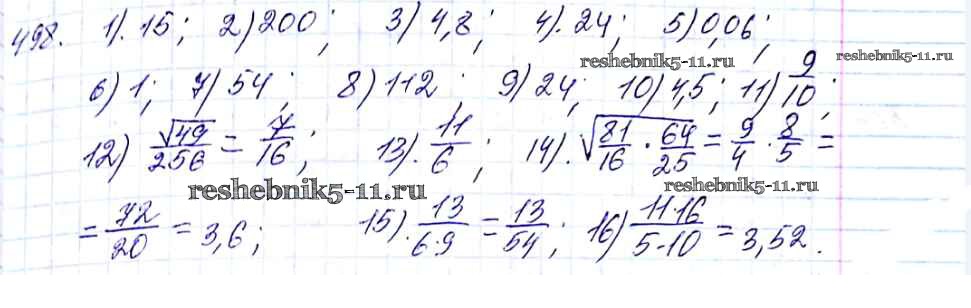 498. 1). 15; 2) 200; 3) 4,8; 4). 24; 5) 0,06;
reshebnik5-11.ru reshebnik5-11.ru
6) 1; 7) 54; 8) 112; 9) 24; 10) 4,5; 11) 9/10;
12) √49/256 = 7/16; 13). 11/6; 14). √(81/16 · 64/25) = 9/4 · 8/5 =
reshebnik5-11.ru reshebnik5-11.ru
= 72/20 = 3,6; 15). 13/(6·9) = 13/54; 16) (11·16)/(5·10) = 3,52.